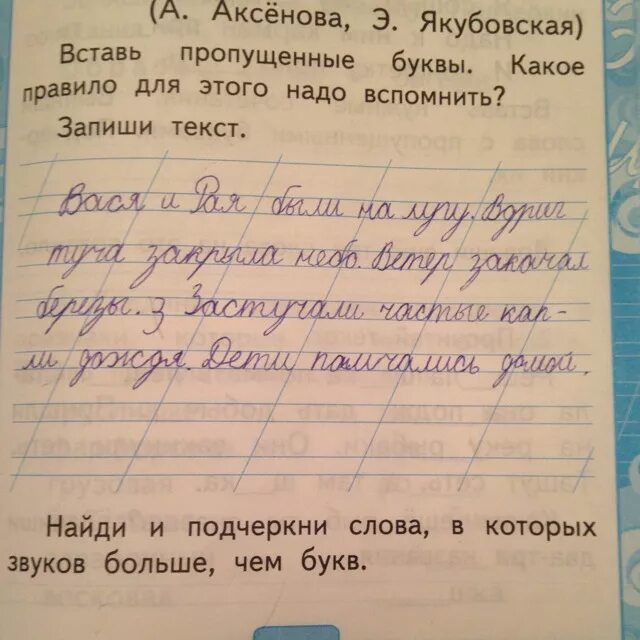 (А. Аксёнова, Э. Якубовская)
Вставь пропущенные буквы. Какое
правило для этого надо вспомнить?
Запиши текст.
Вася и Рая были на лугу. Вдруг
туча закрыла небо. Ветер закачал
березы. З Застучали частые кап-
ли дождя. Дети помчались домой.
Найди и подчеркни слова, в которых
звуков больше, чем букв.